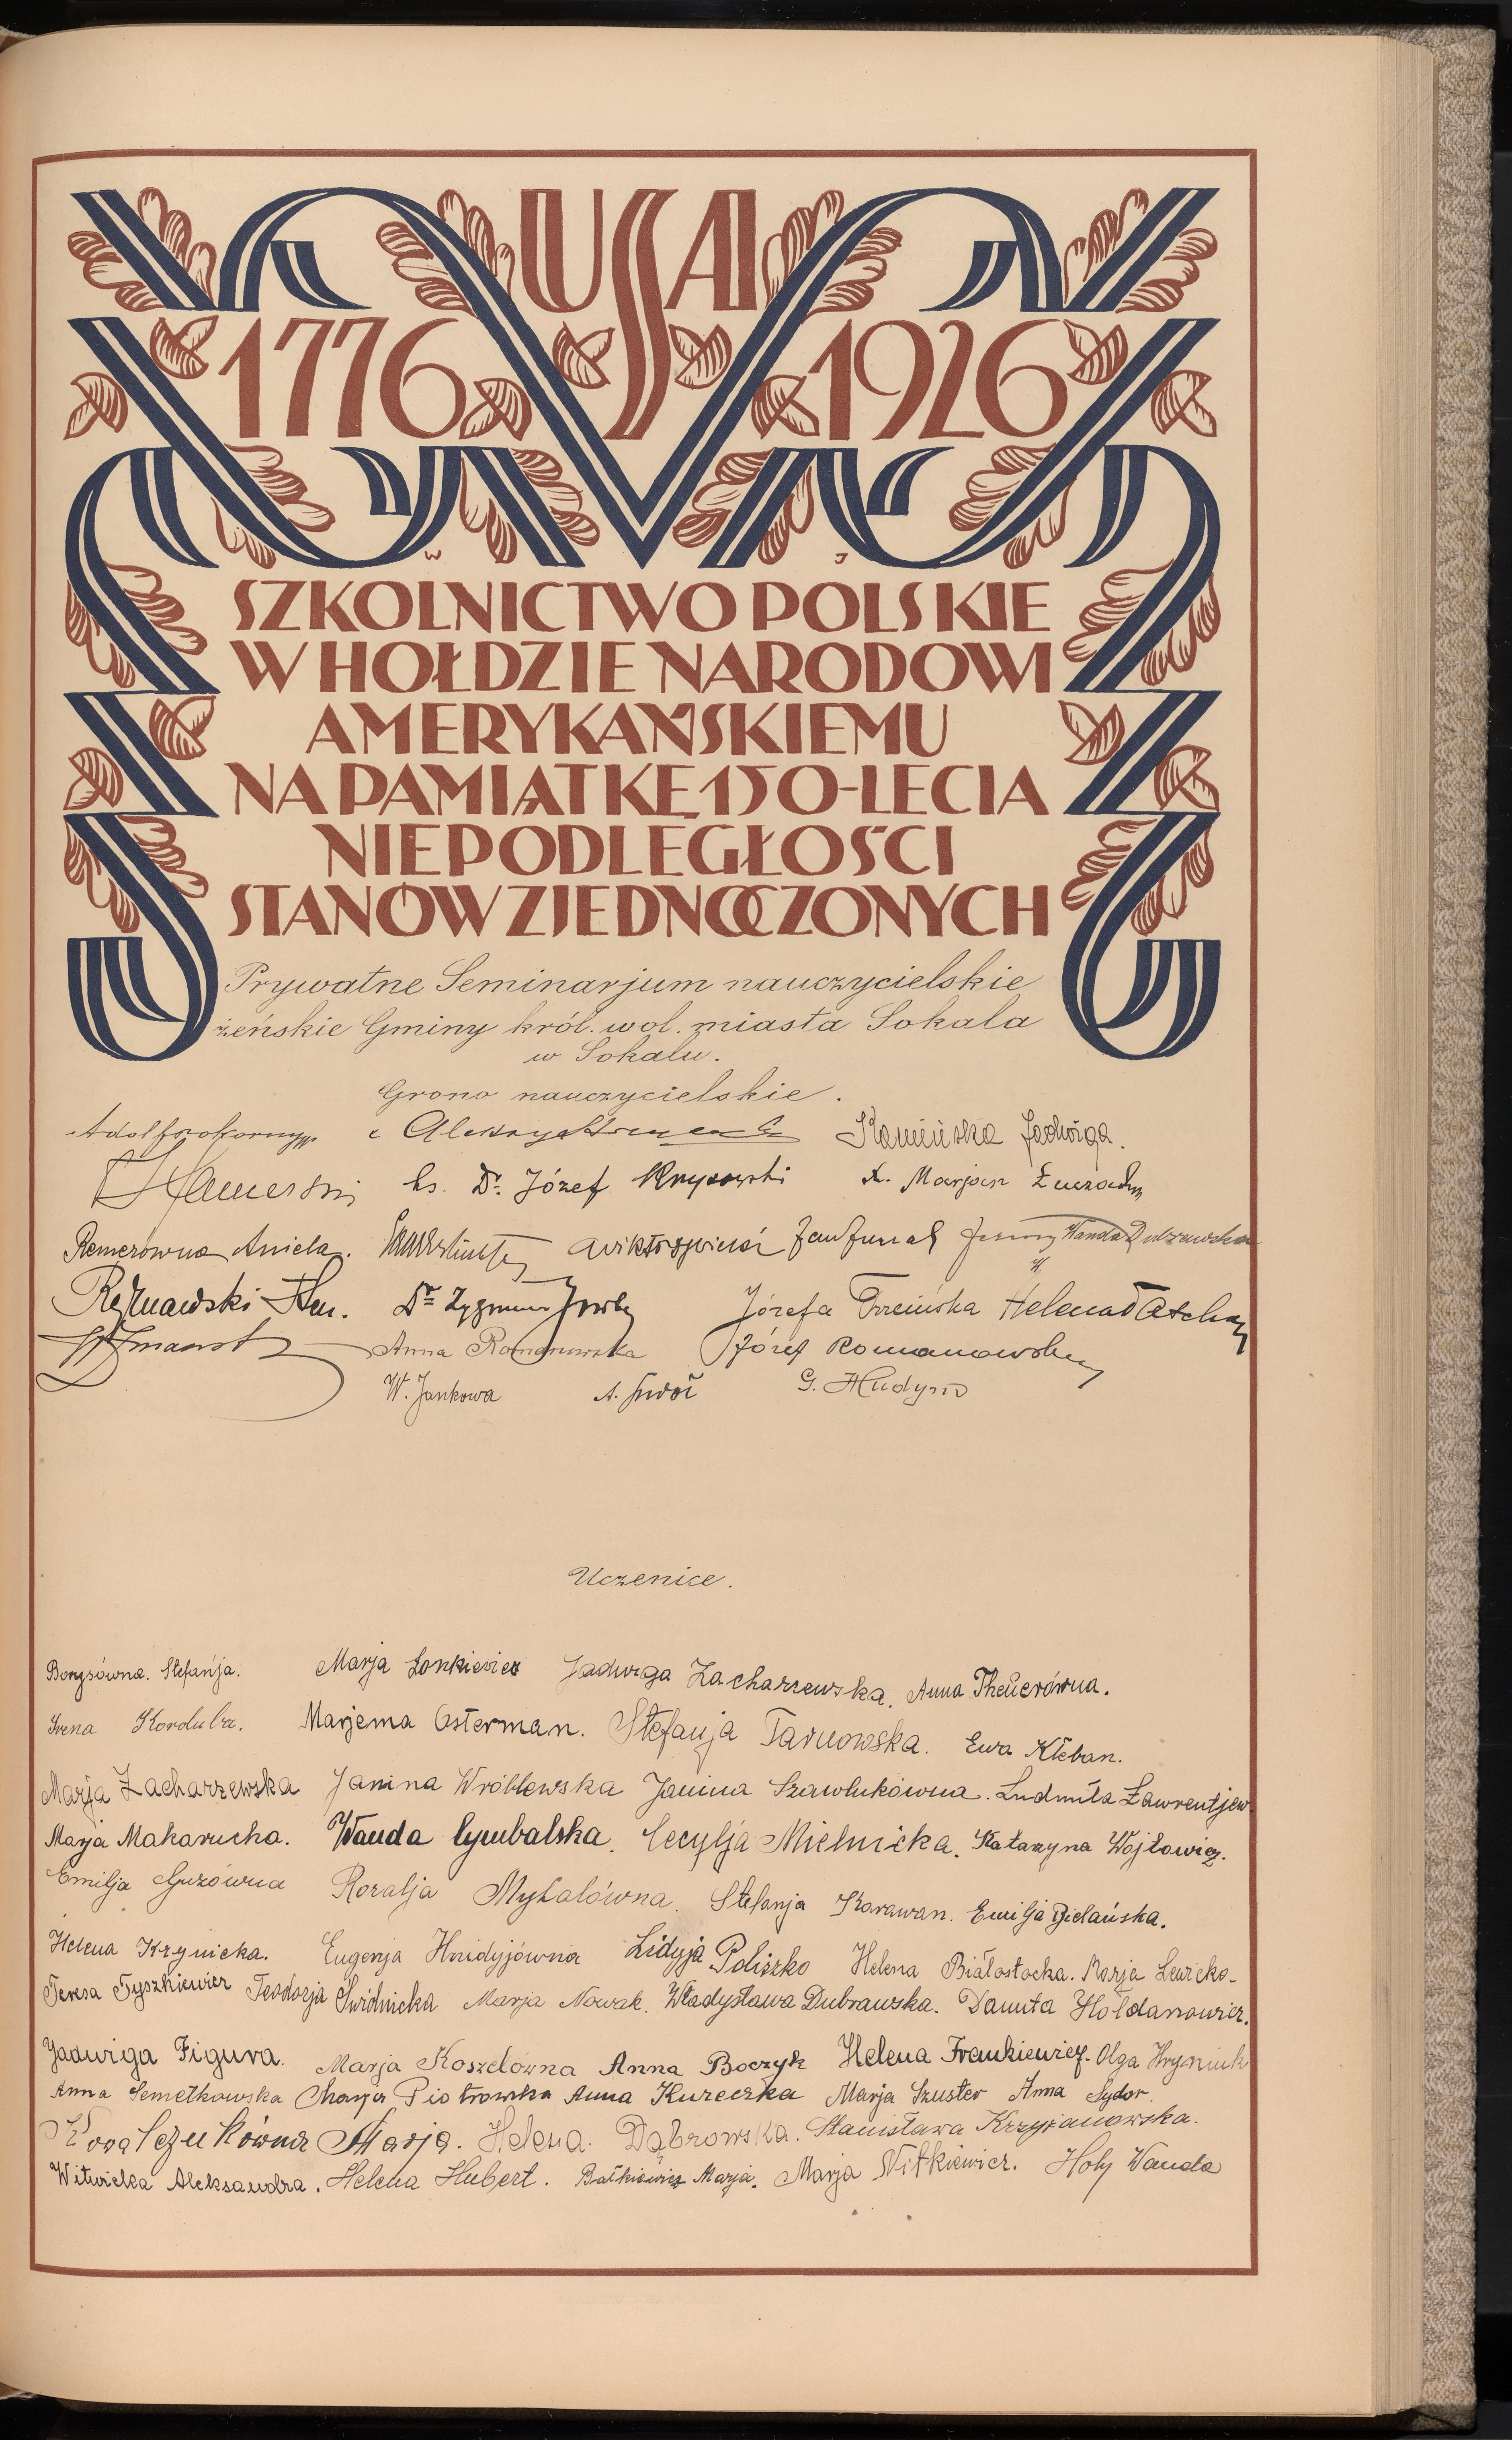 USA
1776 1926
W J
SZKOLNICTWO POLSKIE
W HOŁDZIE NARODOWI
AMERYKAŃSKIEMU
NA PAMIĄTKĘ 150-LECIA
NIEPODLEGŁOŚCI
STANÓW ZJEDNOCZONYCH
Prywatne Seminarjum nauczycielskie
żeńskie Gminy król. wol. miasta Sokala
w Sokalu.
Grono nauczycielskie.
Kamińska Jadwiga.
ks. Dr. Józef x. Marjan
Remerówna Aniela. Wanda
Dr Zygmunt Józefa Helena
Anna Romanowska Józef Romanowski
W. Jankowa A. G. Hudym
Uczenice.
Borysówna. Stefańja. Marja Lonkiewicz Jadwiga Zacharzewska. Anna Theuerówna.
Irena Korduba. Marjema Osterman. Stefanja Tarnowska. Ewa Kłeban.
Marja Zacharzewska Janina Wróblewska Janina Szawlukówna. Ludmiła Ławrentjew.
Marja Makarucha. Wanda Cymbalska. Cecylja Mielnicka. Katarzyna Wojtowicz.
Emilja Guzówna Rozalja Myhalówna. Stefanja Karawan. Emilja Bielańska.
Helena Krynicka. Eugenja Hnidyjówna Lidyja Poliszko Helena Białostocka. Marja Lewicka
Teresa Tyszkiewicz Teodozja Świdnicka Marja Nowak. Władysława Dubrawska. Danuta Hołdanowicz.
Jadwiga Figura. Marja Koszelówna Anna Boczyk Helena Frankiewicz. Olga Hryniuk
Anna Semetkowska Marja Piotrowska Anna Kureczka Marja Szuster Anna Sydor.
Kowalczukówna Marja. Helena Dąbrowska. Stanisława Krzyżanowska.
Witwicka Aleksandra. Helena Hubert. Bałkiewicz Marja. Marja Witkiewicz. Hoły Wanda